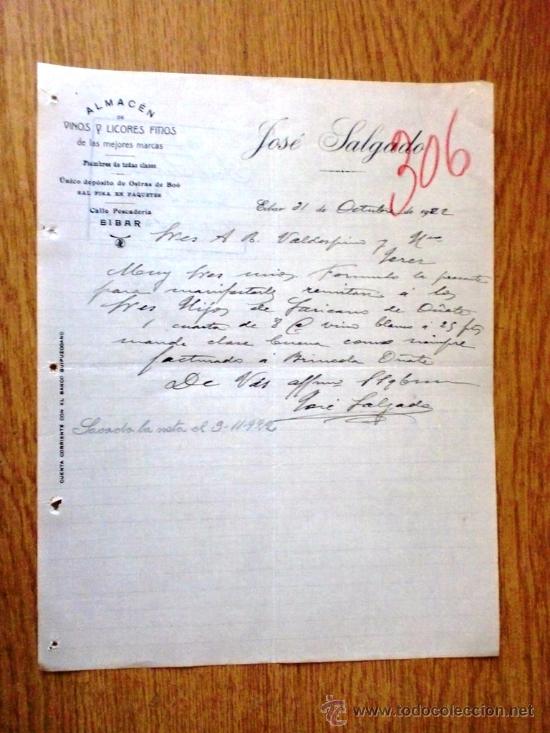 ALMACÉN
DE
VINOS Y LICORES FINOS
de las mejores marcas
Fiambres de todas clases
Único depósito de Ostras de Boó
SAL FINA EN PAQUETES
Calle Pescadería
EIBAR
José Salgado
306
Eibar 21 de Octubre de 1922
Sres A. R. Valdespino y Hno
Jerez
Muy Sres mios Formulo la presente
para manifestarle remitan á los
Sres Hijos de de Oñate
1 cuarta de 8 @ vino blanco á 25 pts
mande clase buena como siempre
facturado á Brincola Oñate
De Vds affmo
José Salgado
Sacado la nota el 3-11-922
CUENTA CORRIENTE CON EL BANCO GUIPUZCOANO
www.todocoleccion.net